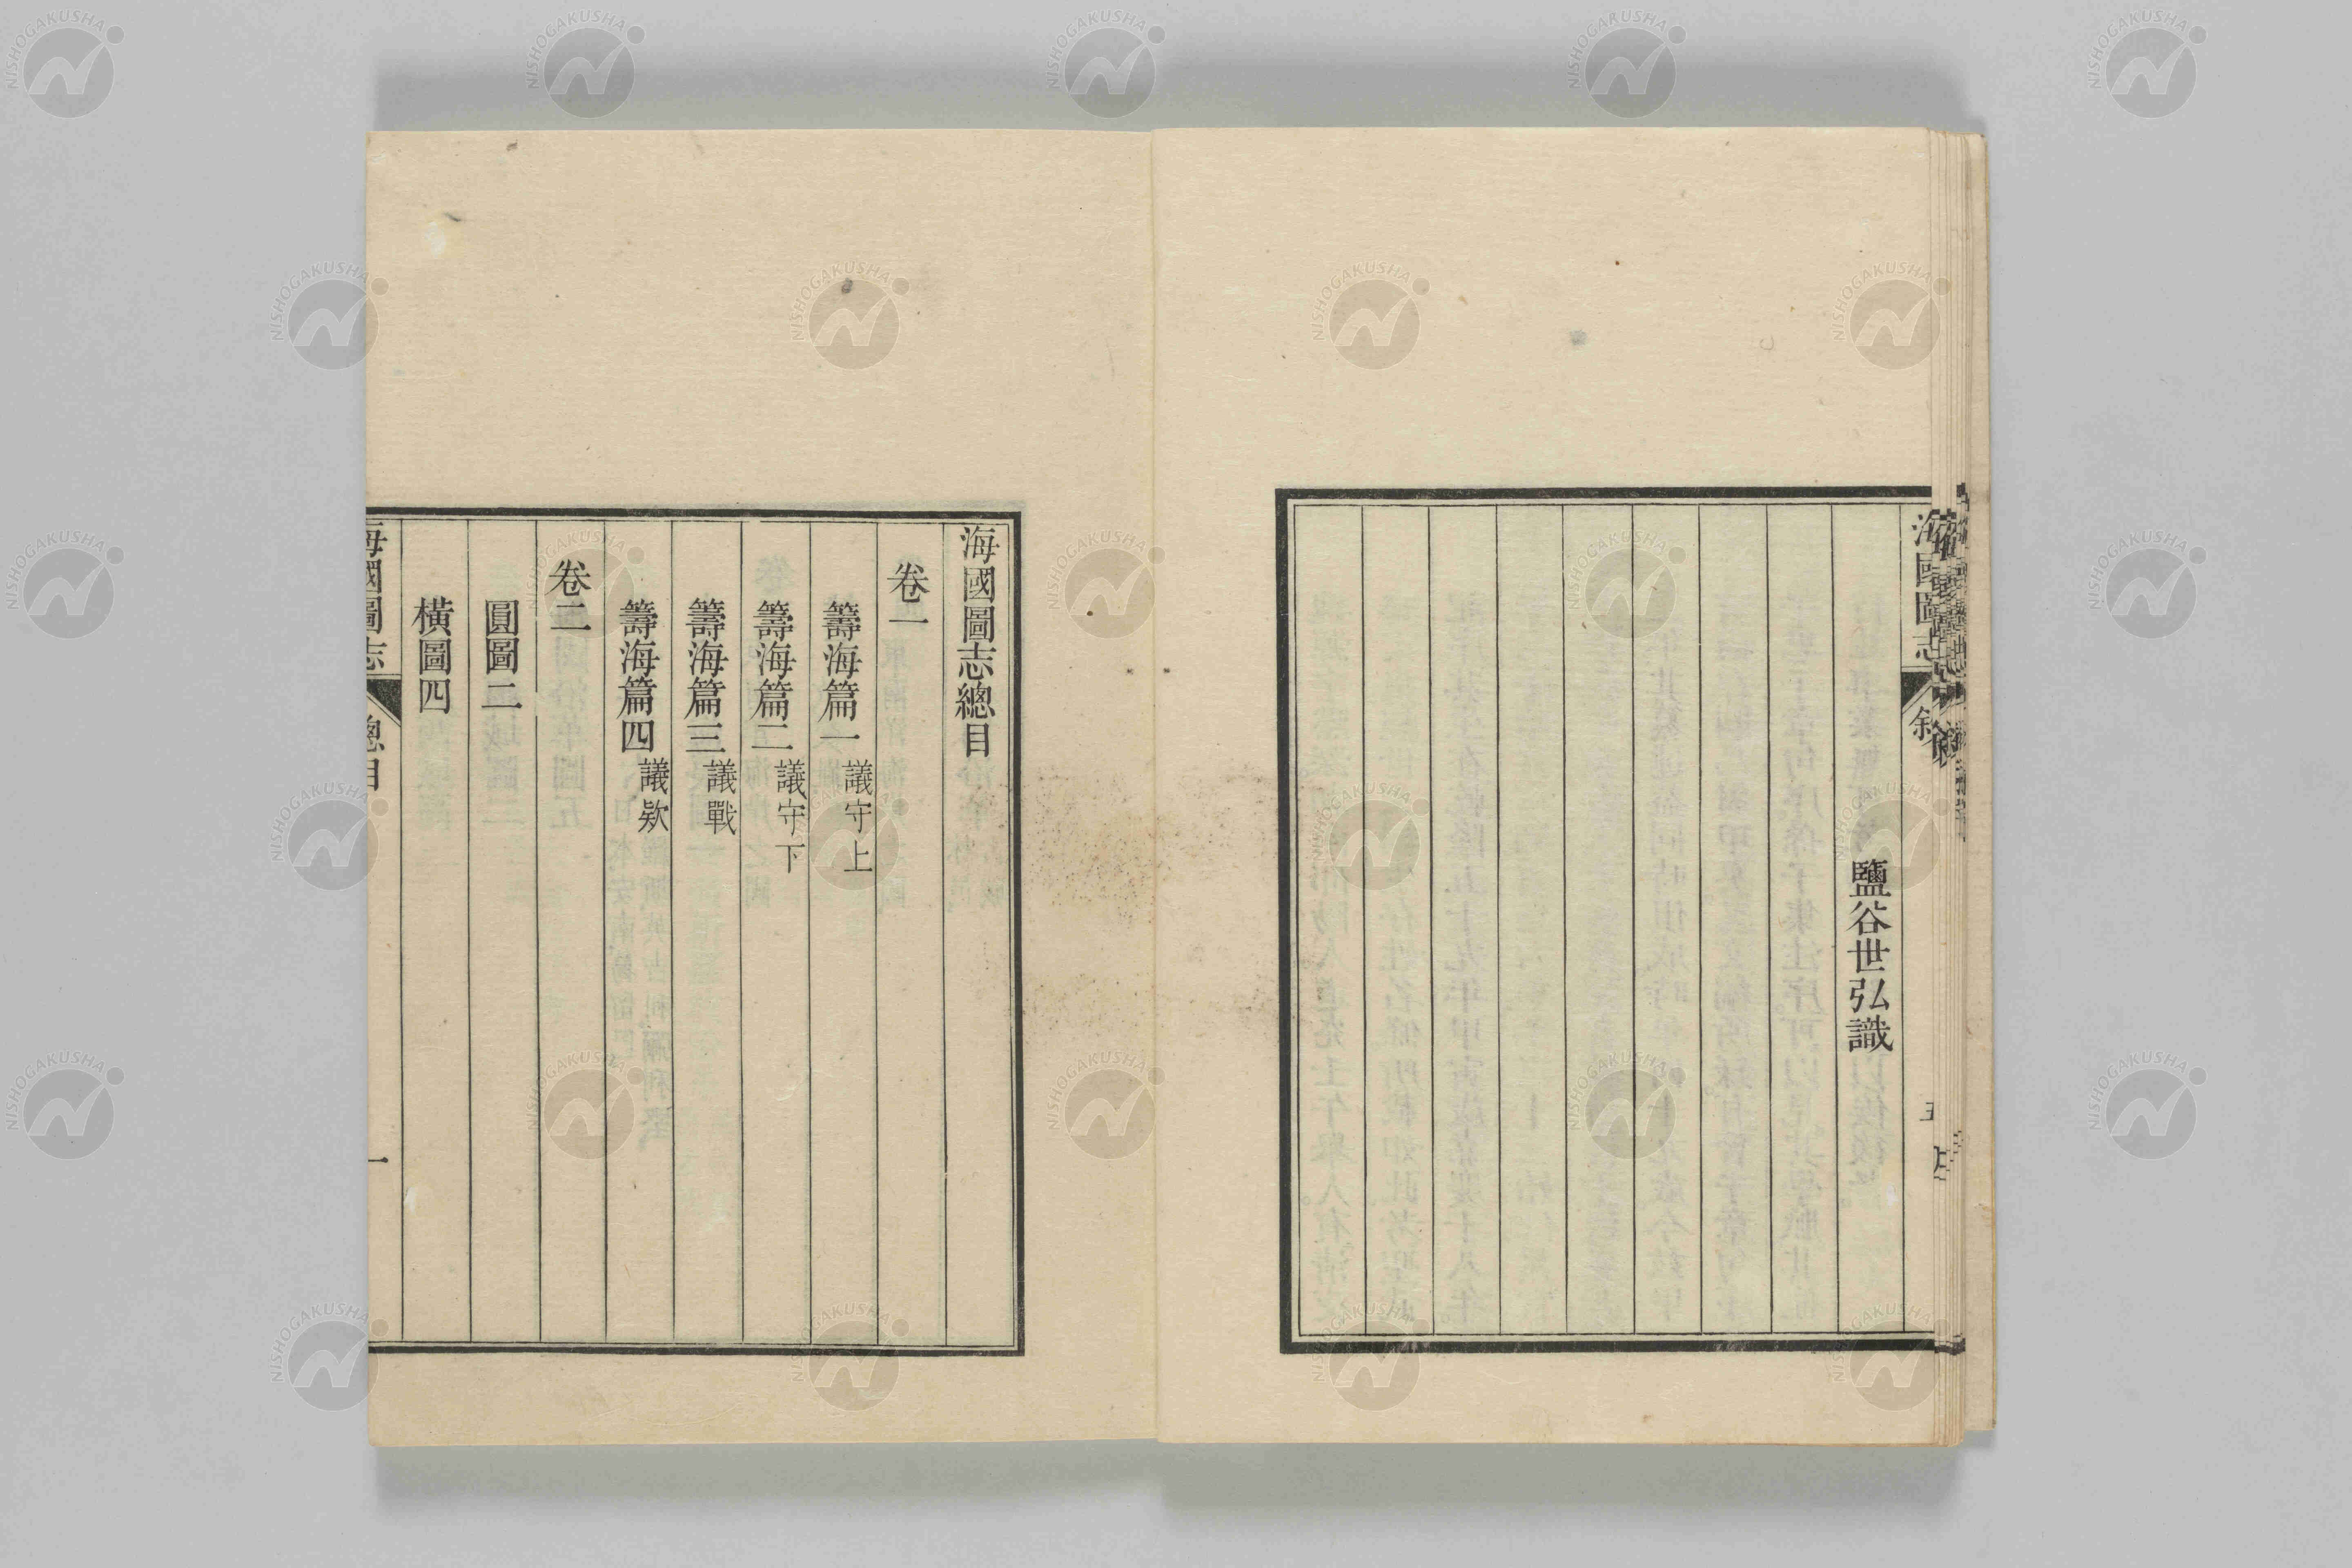 海國圖志
敘
五
鹽谷世弘識
海國圖志總目
卷一
籌海篇一 議守上
籌海篇二 議守下
籌海篇三 議戰
籌海篇四 議欵
卷二
圓圖二
橫圖四
海國圖志
總目
一
NISHOGAKUSHA